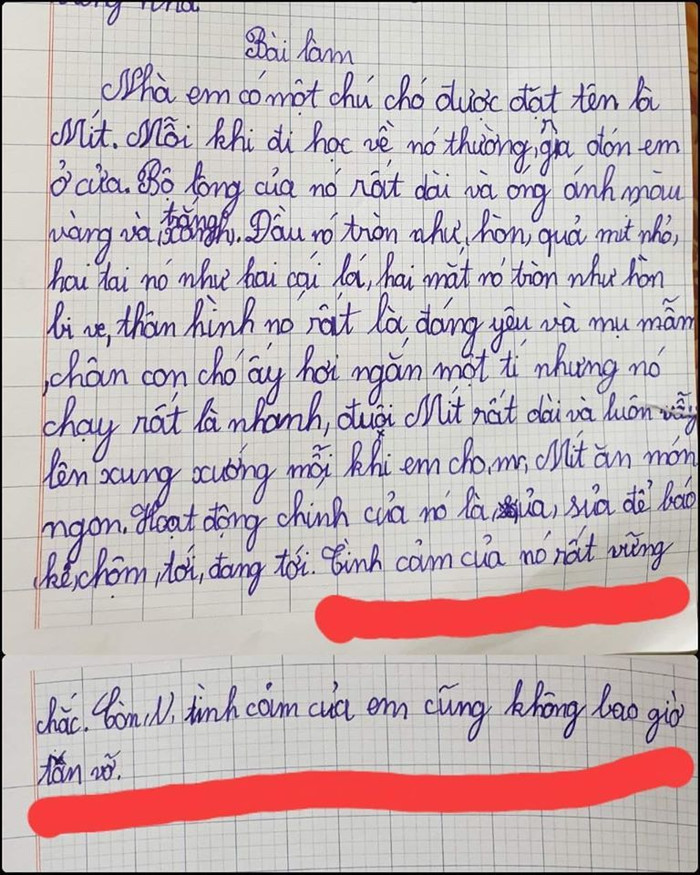 Bài làm
Nhà em có một chú chó được đặt tên là
Mít. Mỗi khi đi học về nó thường, ra đón em
ở cửa. Bộ lông của nó rất dài và óng ánh màu
vàng và trắng. Đầu nó tròn như, hòn, quả mít nhỏ,
hai tai nó như hai cái lá, hai mắt nó tròn như hòn
bi ve, thân hình nó rất là, đáng yêu và mụ mẫm
, chân con chó ấy hơi ngắn một tí nhưng nó
chạy rất là nhanh, đuôi Mít rất dài và luôn vẫy
lên xung xướng mỗi khi em cho, mr, Mít ăn món
ngon. Hoạt động chính của nó là sủa, sủa để báo
kẻ, chộm, tới, đang tới. Tình cảm của nó rất vững
chắc. Còn, N, tình cảm của em cũng không bao giờ
tắn vỡ.